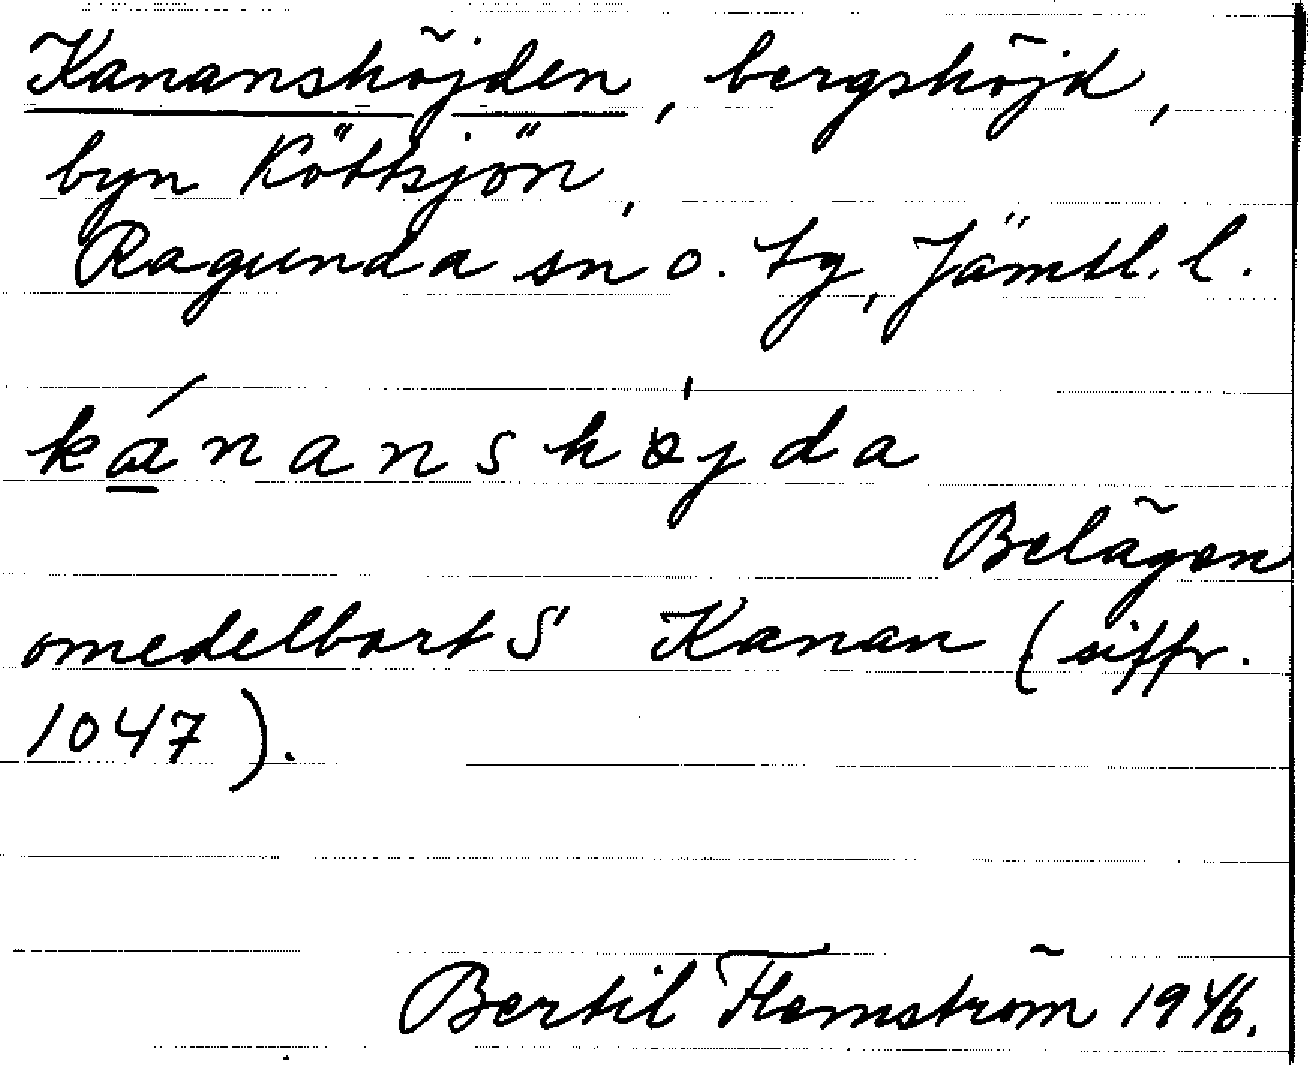 Kananshöjden, bergshöjd,
byn Köttsjön,
Ragunda sn o. tg, Jämtl. l.
ká̱nanshøjda
Belägen
omedelbart S Kanan (siffr.
1047).
Bertil Flemström 1946.